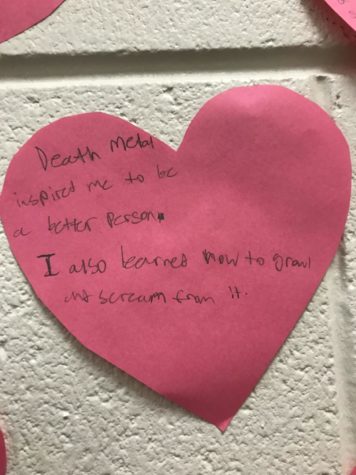 Death metal
inspired me to be
a better person.
I also learned how to growl
and scream from it.